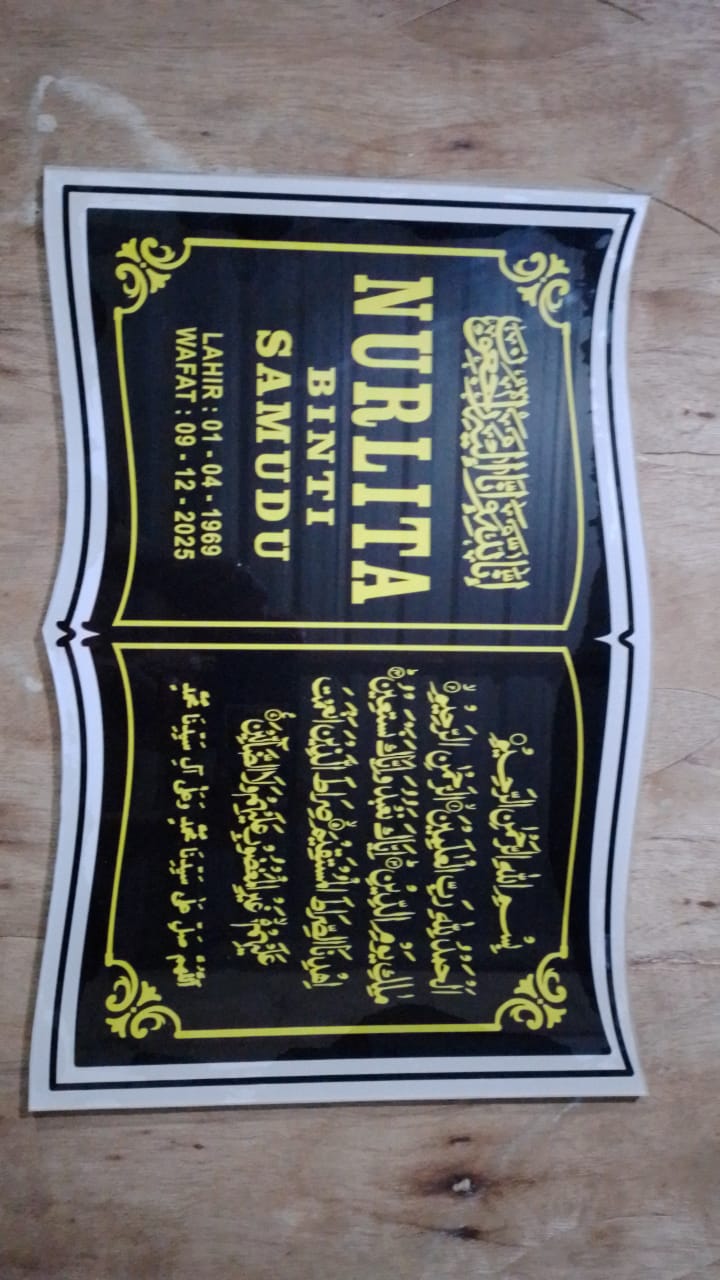 إنا لله وإنا إليه راجعون
NURLITA
BINTI
SAMUDU
LAHIR : 01 - 04 - 1969
WAFAT : 09 - 12 - 2025
بِسْمِ اللهِ الرَّحْمٰنِ الرَّحِيْمِ ۝
اَلْحَمْدُ لِلّٰهِ رَبِّ الْعٰلَمِيْنَۙ ۝ الرَّحْمٰنِ الرَّحِيْمِۙ ۝
مٰلِكِ يَوْمِ الدِّيْنِۗ ۝ اِيَّاكَ نَعْبُدُ وَاِيَّاكَ نَسْتَعِيْنُۗ ۝
اِهْدِنَا الصِّرَاطَ الْمُسْتَقِيْمَۙ ۝ صِرَاطَ الَّذِيْنَ اَنْعَمْتَ
عَلَيْهِمْ ەۙ غَيْرِ الْمَغْضُوْبِ عَلَيْهِمْ وَلَا الضَّاۤلِّيْنَ ۝
اَللّٰهُمَّ صَلِّ عَلٰى سَيِّدِنَا مُحَمَّدٍ وَعَلٰى اٰلِ سَيِّدِنَا مُحَمَّدٍ